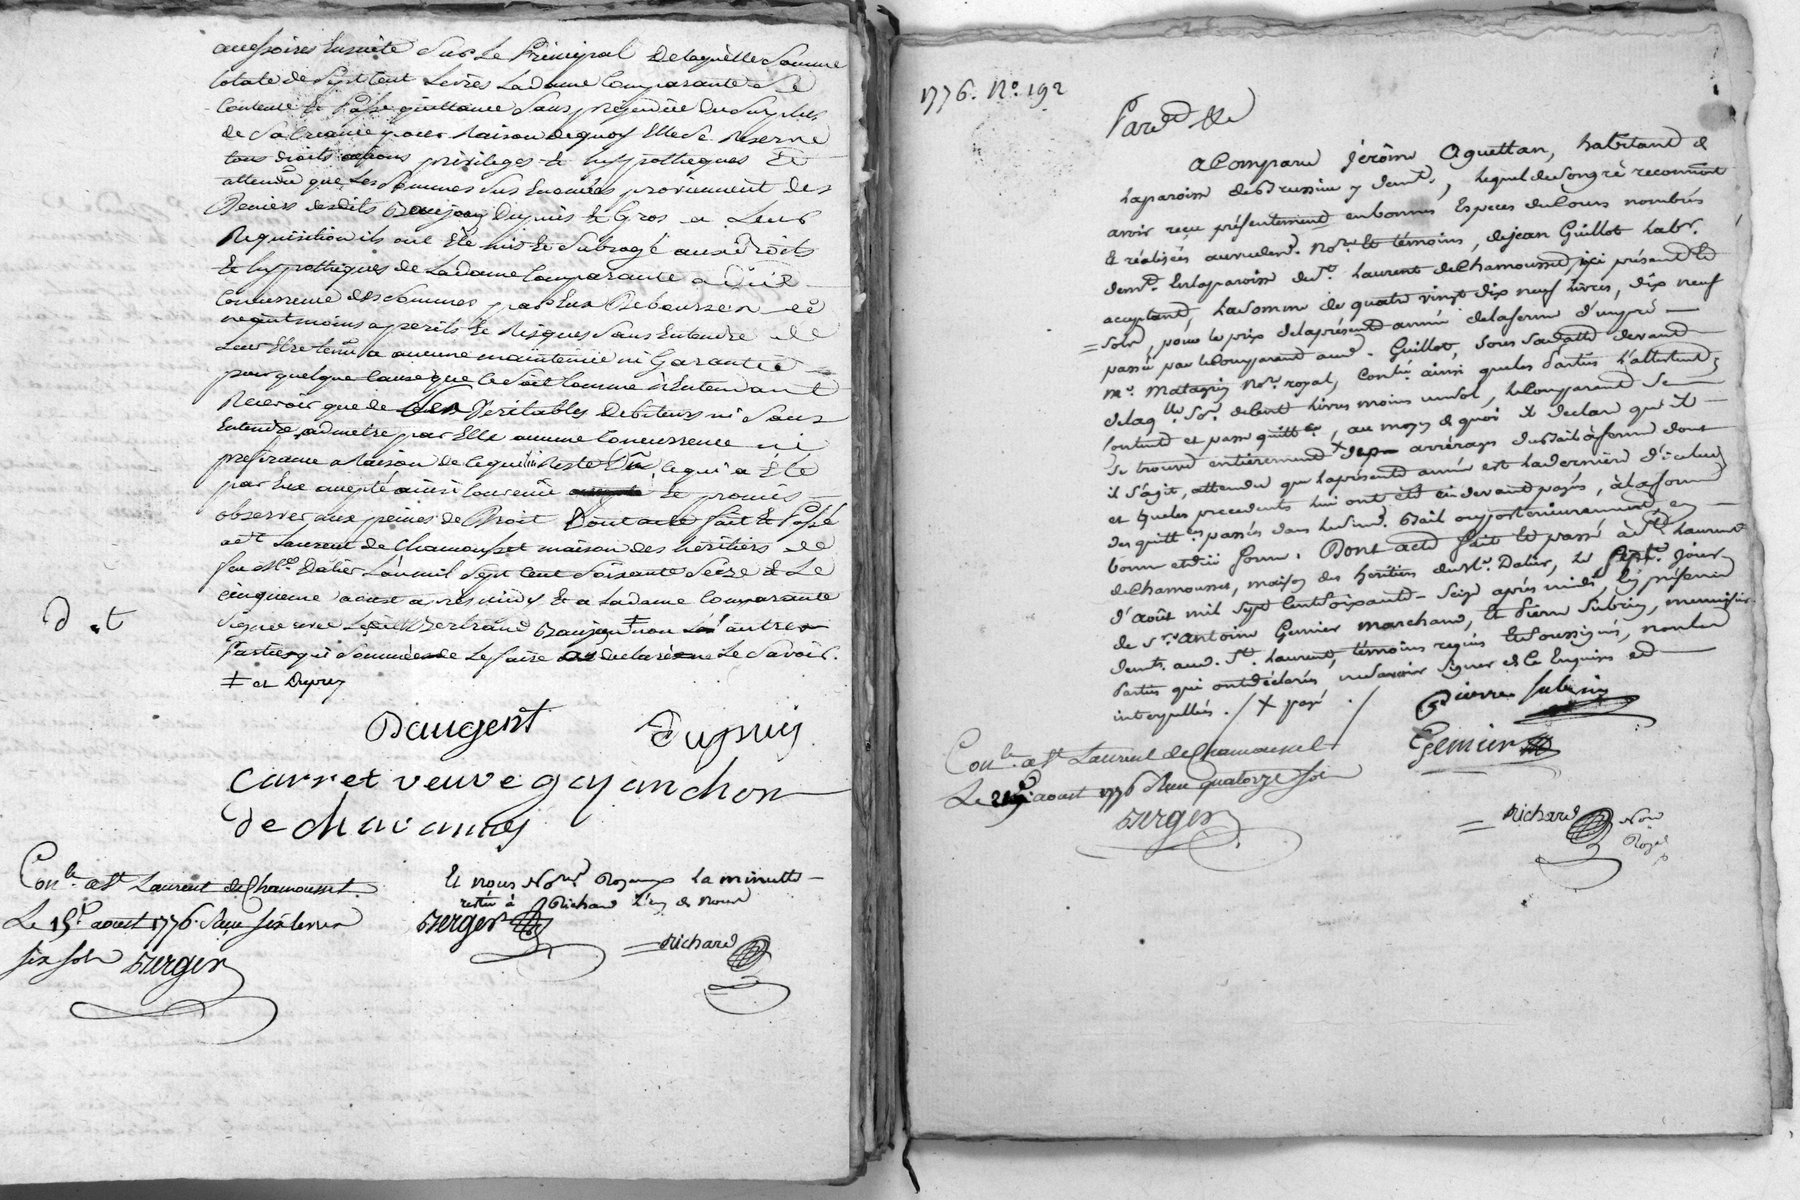 accessoires ensuite sur le Principal de laquelle somme
totale de sept cent livres la dame Comparante se
contente et passe quittance sans prejudice du surplus
de sa creance pour Raison de quoy Elle se Reserve
tous droits actions privileges et hyppotheques et
attendu que les sommes sus Enoncées proviennent des
deniers desdits Baujeau Dupuis et Gros a Leur
Requisition ils ont Eté mis et subrogé aux droits
et hyppotheques de La dame Comparante a düe
Concurrence des sommes par Eux Rebourseés et
neantmoins a perils et Risques sans Entendre
Leur Etre tenue a aucune maintenüe ni Garantie
pour quelque Cause que Ce soit Comme n'Entendant
Recevoir que de ses veritables debiteurs ni sans
Entendre admetre par Elle aucune Concurrence ni
preferance a Raison de ce qui lui Reste Dû ce qui a été
par Eux accepté ainsi Convenu et promis
observer aux peines de Droit Dont acte fait et Passé
a St Laurent de Chamousset maison des héritiers de
feu Me Dalier L'an mil sept cent soixante seize et Le
cinquieme aoust après midy Et a La dame Comparante
signée avec Bertrand Baujeau ‡ non les autres
Parties qui sommées de Le faire ont declaré ne Le Savoir.
‡ et Dupuy
D. t
Baugent Dupuis
Carret veuve gayanchon
de chavannes
Conlé a St Laurent de Chamousset
Le 19e aoust 1776 Reçu six livres
six sols Berger
Et nous Nores Royaux La minutte
restée à Richard L'un de nous
Berger
Richard
1776. No. 192
Pardt
A Comparu Jérôme Aguettan, habitant de
la paroisse de Brussieu y demt., lequel de son gré reconnoît
avoir reçu présentement en bonnes Especes du Cours nombrées
et réalisées au vu dud. Nore et témoins, de jean Guillot labr.
demt. En la paroisse de St. Laurent de Chamousset ici présent et
acceptant, la somme de quatre vingt dix neuf livres, dix neuf
sols, pour le prix de la présente année de la ferme d'un pré
passé par le Comparant aud. Guillot, sous sa datte devant
Me. Matagrin Nore. royal, Conlé. ainsi que les Parties l'attestent,
de laqlle. Soe. de Cent livres moins un sol, le Comparant se
Contente et passe quittce, au moyen de quoi il declare qu'il
se trouve entièrement × des arrérages du Bail à ferme dont
il s'agit, attendu que la présente année est la derniere d'icelui,
et que les precedents lui ont été ci devant payés, à la forme
des quittces passées dans led. Bail ou postérieurement, en
bonne et due forme. Dont acte fait et passé à St. Laurent
de Chamousset, maison des heritiers de Me. Dalier, le septe. jour
d'août mil sept Cent soixante-Seize après midi, En présence
de Sr. Antoine Gemier marchand, Et Pierre Subrin, menuisier
demts. aud. St. Laurent, témoins requis Et soussignés, non les
Parties qui ont déclaré ne savoir signer de Ce Enquises et
interpellées. / × payé /
Pierre Subrin
Gemier
Conlé. a St Laurent de Chamousset
Le aoust 1776 Reçu quatorze sols
Berger
Richard Nore
Royal